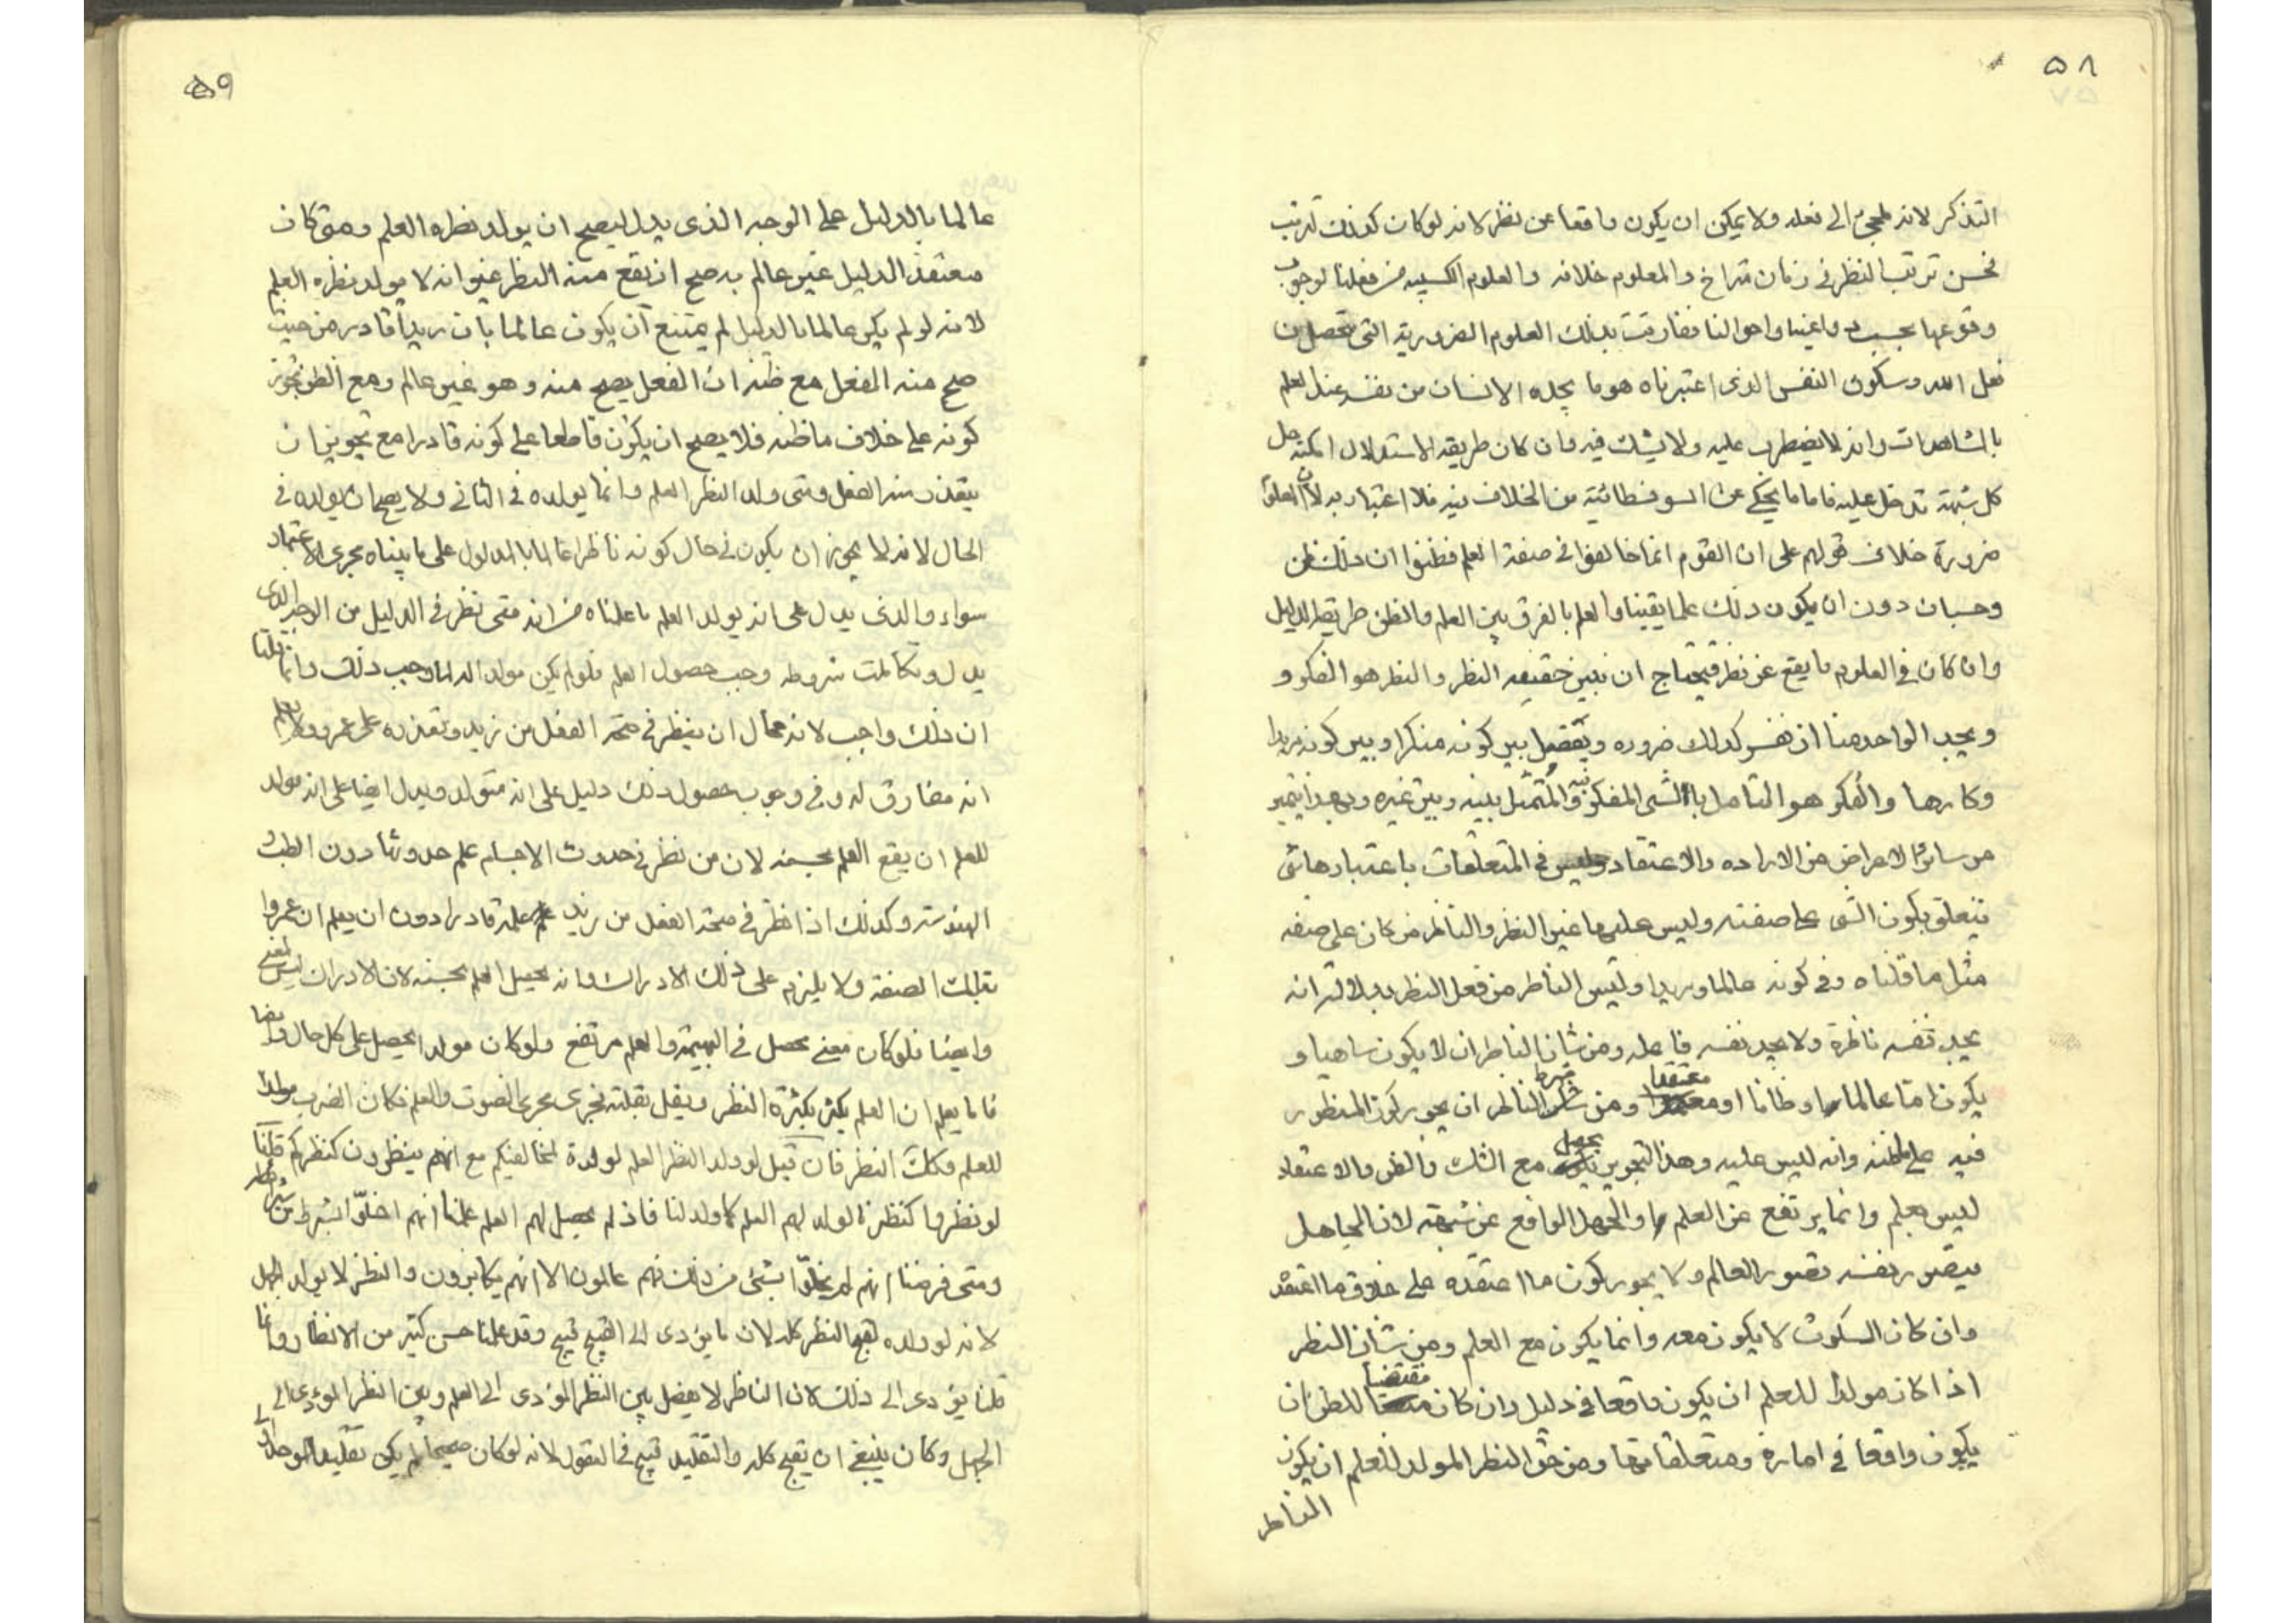 ٥٨
التذكر لانه ملجئ الى فعله ولا يمكن ان يكون واقعا عن نظر لانه لو كان كذلك لترتب
نحسن ترتب النظر فى زمان متراخ والمعلوم خلافه والعلوم الكسبيه من فعلنا لوجوب
وقوعها بحسب دواعينا واحوالنا ففارقت بذلك العلوم الضرورية التى تحصل من
فعل الله وسكون النفس الذى اعتبرناه هو ما يجده الانسان من نفسه عند العلم
بالمشاهدات وانه لا يضطرب عليه ولا يشك فيه وان كان طريقه الاستدلال امكنه حل
كل شبهة تدخل عليه فاما ما يحكى عن السوفسطائية من الخلاف فيه فلا اعتبار به لان المعلوم
ضرورة خلاف قولهم على ان القوم انما خالفوا فى صفة العلم فظنوا ان ذلك ظن
وحسبان دون ان يكون ذلك علما يقينا والعلم بالفرق بين العلم والظن طريقه الدليل
وان كان فى العلوم ما يقع عن نظر فيحتاج ان نبين حقيقه النظر والنظر هو الفكر و
ويجد الواحد منا ان نفسه كذلك ضروره ويفصل بين كونه مفكرا وبين كونه مريدا
وكارها والفكر هو التأمل بالشى المفكر فيه والمتمثل بينه وبين غيره وبهذا يتميز
من سائر الاعراض من الاراده والاعتقاد وليس فى المتعلقات باعتبارها شى
يتعلق بكون الشى على صفته وليس عليها غير النظر والناظر من كان على صفه
مثل ما قلناه وفى كونه عالما ومريدا وليس الناظر من فعل النظر بدلالة انه
يجد نفسه ناظرة ولا يجد نفسه فاعله ومن شان الناظر ان لا يكون ساهيا و
يكون اما عالما او ظانا او معتقدا ومن شرط الناظر ان يجوز كون المنظور
فيه على ظنه وانه ليس عليه وهذا التجويز يحصل مع الشك والظن والاعتقاد
ليس بعلم وانما يرتفع عن العلم والجهل الواقع عن شبهة لان الجاهل
يتصور نفسه تصور العالم ولا يجوز كون ما اعتقده على خلاف ما اعتقد
وان كان السكون لا يكون معه وانما يكون مع العلم ومن شان النظر
اذا كان مولدا للعلم ان يكون واقعا فى دليل وان كان مقتضيا للظن ان
يكون واقعا فى امارة ومتعلقا بها ومن حق النظر المولد للعلم ان يكون
الناظر
٥٩
عالما بالدليل على الوجه الذى يدل ليصح ان يولد نظره العلم ومتى كان
معتقد الدليل غير عالم به صح ان يقع منه النظر غير انه لا يولد نظره العلم
لانه لو لم يكن عالما بالدليل لم يمتنع ان يكون عالما بان زيدا قادر من حيث
صح منه الفعل مع ظنه ان الفعل يصح منه وهو غير عالم ومع الظن تجوز
كونه على خلاف ما ظنه فلا يصح ان يكون قاطعا على كونه قادرا مع تجويز ان
يتعذر منه الفعل ومتى ولد النظر العلم وانما يولده فى الثانى ولا يصح ان يولده فى
الحال لانه لا يجوز ان يكون فى حال كونه ناظرا عالما بالمدلول على ما بيناه مجرى الاعتماد
سواء والذى يدل على انه يولد العلم ما علمناه من انه متى نظر فى الدليل من الوجه الذى
يدل وتكاملت شروطه وجب حصول العلم فلو لم يكن مولدا له لما وجب ذلك وانما قلنا
ان ذلك واجب لانه محال ان ينظر فى صحة الفعل من زيد وتعذره على عمرو ولا يعلم
انه مفارق له وفى وجوب حصول ذلك دليل على انه متولد ويدل ايضا على انه مولد
للعلم ان يقع العلم بحسبه لان من نظر فى حدوث الاجسام علم حدوثها دون الطب و
الهندسة وكذلك اذا نظر فى صحة الفعل من زيد علمه قادرا دون ان يعلم ان عمروا
بتلك الصفة ولا يلزم على ذلك الادراك وانه يحصل العلم بحسبه لان الادراك ليس بمعنى
وايضا فلو كان معنى يحصل فى البهيمة والعلم مرتفع ولو كان مولدا لحصل على كل حال وايضا
فانا نعلم ان العلم يكثر بكثرة النظر ويقل بقلته فجرى مجرى الضرب والعلم فكان الضرب مولدا
للعلم فكذلك النظر فان قيل لو ولد النظر العلم لولده لمخالفيكم مع انهم ينظرون كنظركم قلنا
لو نظروا كنظرنا لولد لهم العلم كما ولد لنا فاذ لم يحصل لهم العلم علمنا انهم اخلوا بشرط من شرائطه
ومتى فرضنا انهم لم يخلوا بشئ من ذلك فهم عالمون الا انهم يكابرون والنظر لا يولد الجهل
لانه لو ولده لقبح النظر كله لان ما يؤدى الى القبيح قبيح وقد علمنا حسن كثير من الانظار وانما
قلنا يؤدى الى ذلك لان الناظر لا يفصل بين النظر المؤدى الى العلم وبين النظر المؤدى الى
الجهل وكان ينبغى ان يقبح كله والتقليد قبيح فى العقول لانه لو كان صحيحا لم يكن تقليد الموحد اولى